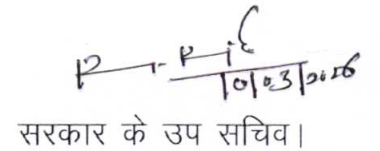 10/03/2026
सरकार के उप सचिव।